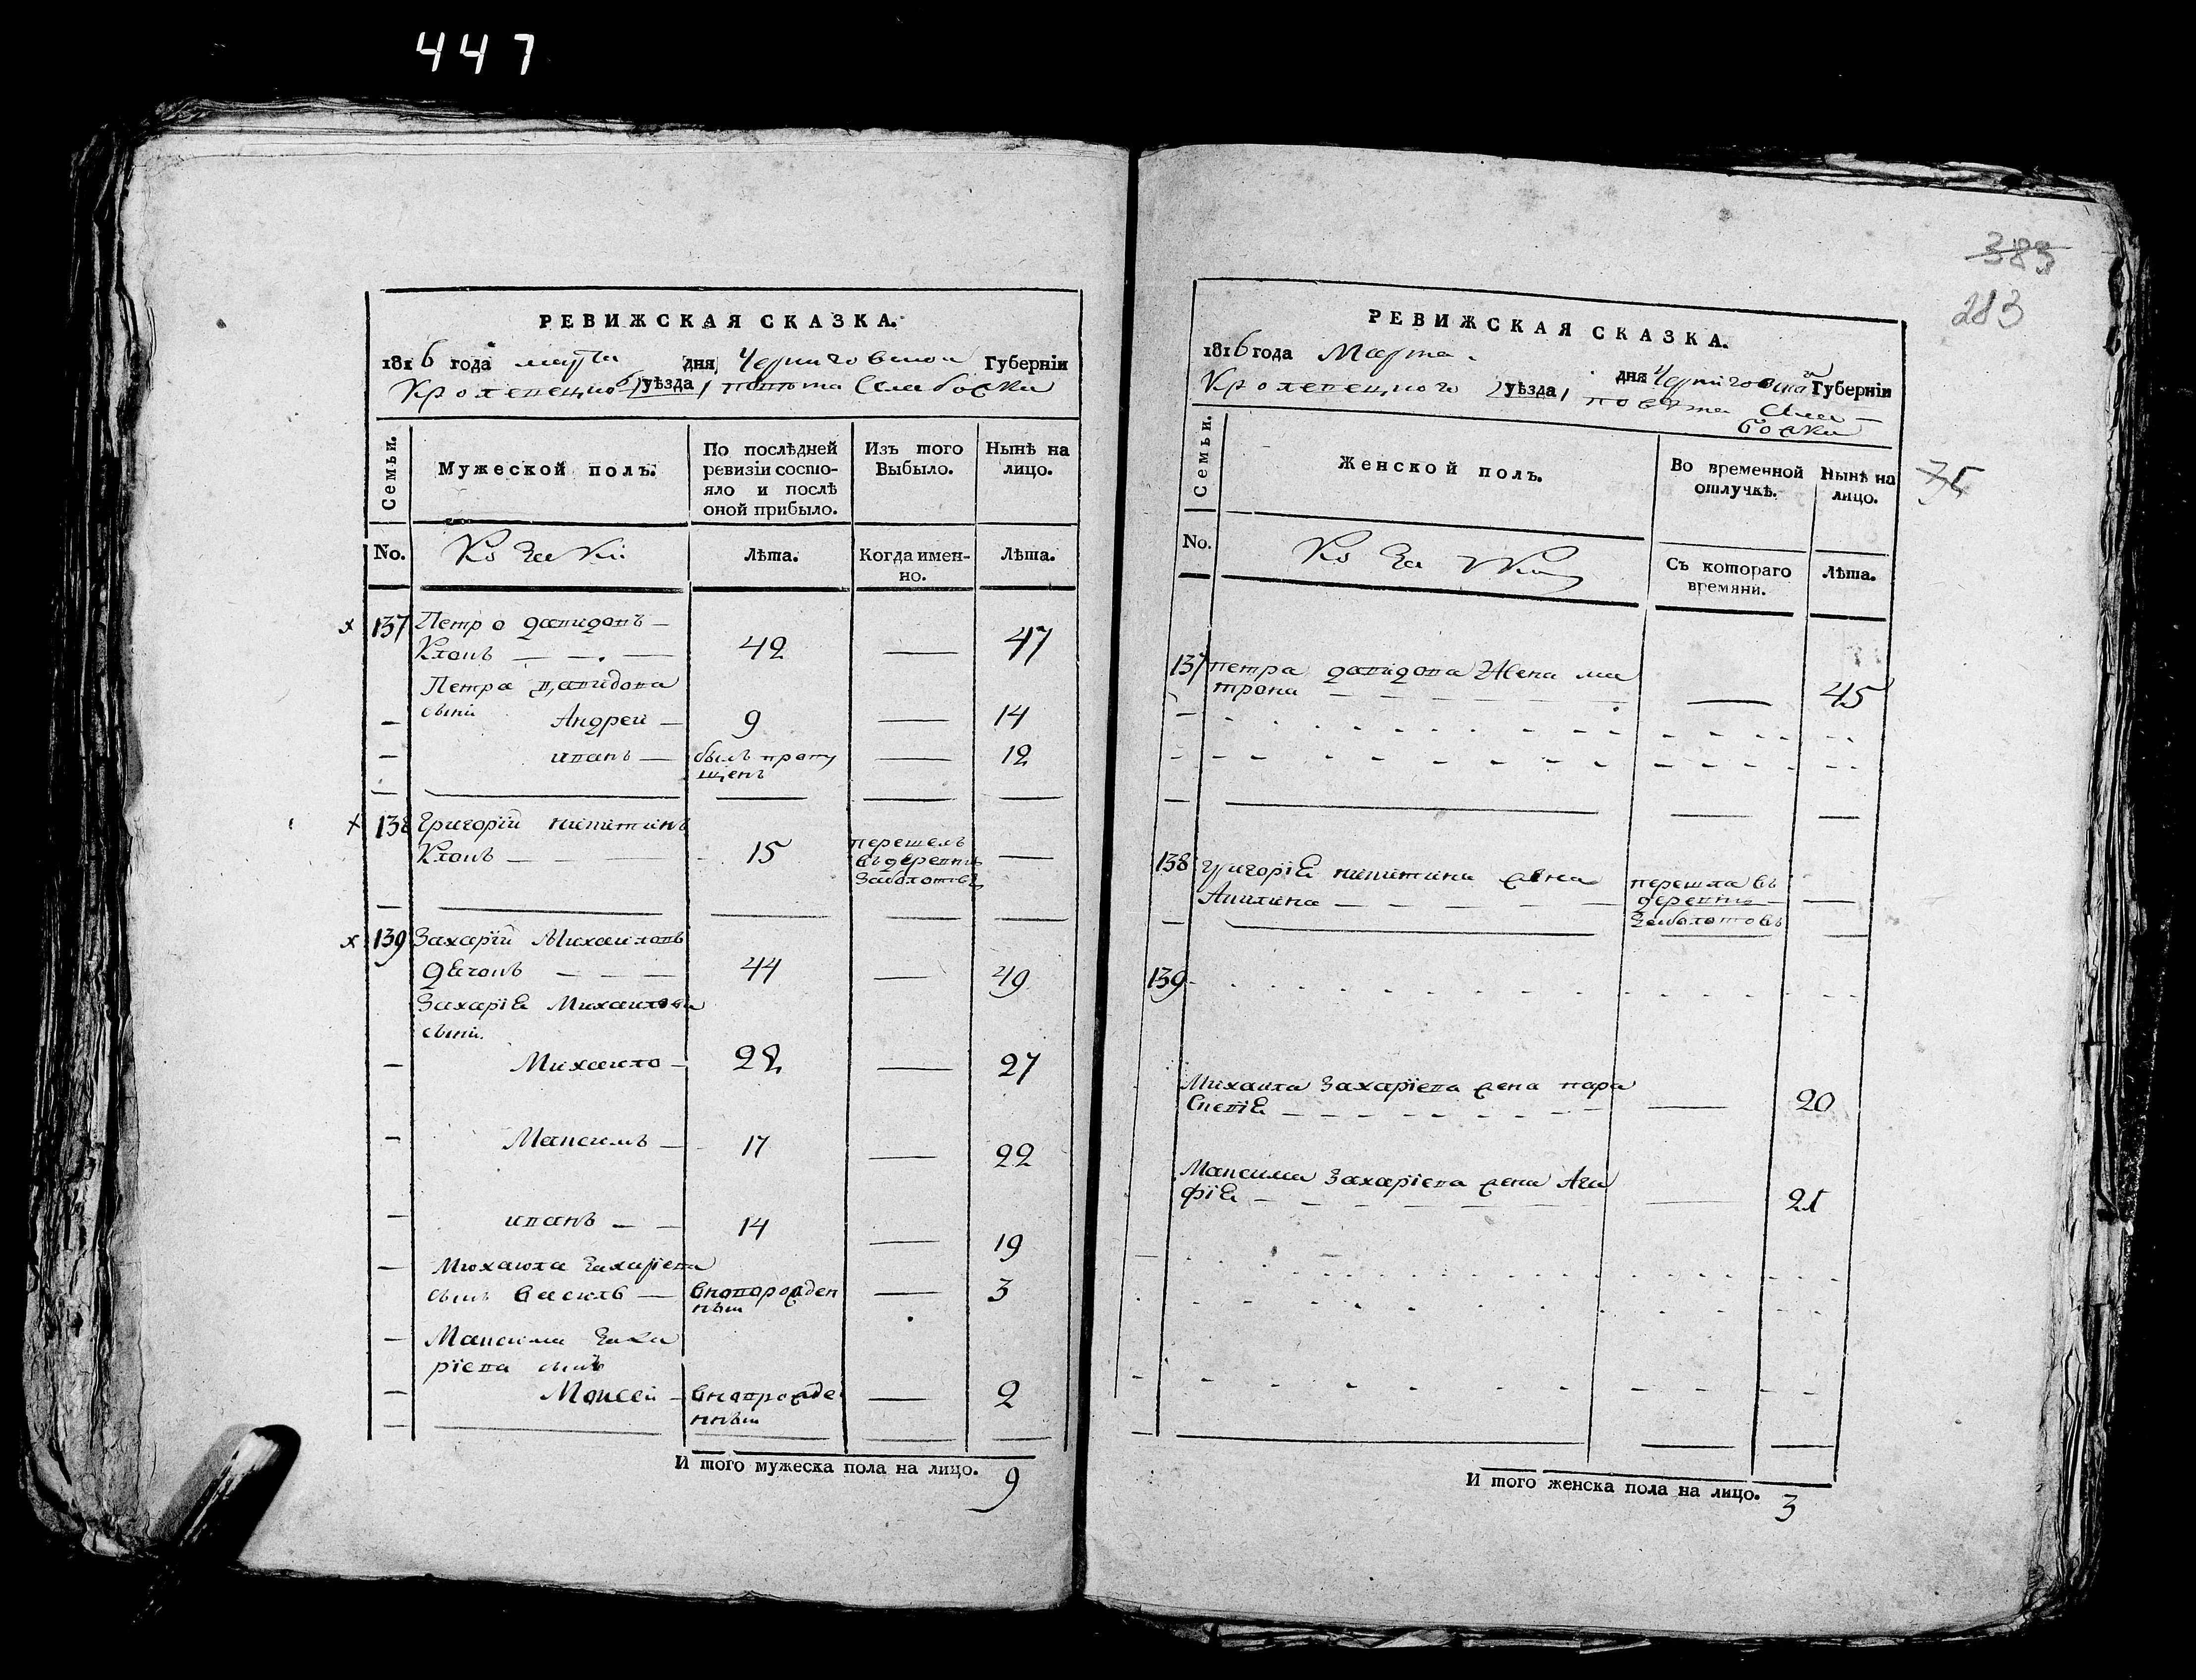 447
РЕВИЖСКАЯ СКАЗКА.
1816 года марта дня Черниговской Губерніи
Кролевецкого уѣзда, повѣта Слободки
Семьи.
Мужеской полъ.
По послѣдней ревизіи состо-
яло и послѣ
оной прибыло.
Изъ того
Выбыло.
Нынѣ на
лицо.
No.
Козаки
Лѣта.
Когда имен-
но.
Лѣта.
х 137 Петро давидовъ —
42 — 47
Петра давидова
сыни Андрей — 9 — 14
иванъ — былъ пропу
щенъ — 12
х 138 Григорій никитинъ
15 перешелъ
въ деревню —
х 139 Захарій Михаиловъ
44 — 49
Захарія Михаилова
сыни
Михаило — 22 — 27
Максимъ — 17 — 22
иванъ — — 14 — 19
Михаила Захаріева
сынъ Василь — вноворожден
ный — 3
Максима Заха
ріева сынъ
Моисей — вноворожде
нный — 2
И того мужеска пола на лицо. 9
383
283
РЕВИЖСКАЯ СКАЗКА.
1816 года Марта дня Черниговской Губерніи
Кролевецкого уѣзда, повѣта Сло
бодки
75
Семьи.
Женской полъ.
Во временной
отлучкѣ.
Нынѣ на
лицо.
No.
Съ котораго
времяни.
Лѣта.
137 Петра давидова Жена ма
трона — — 45
138 Григорія никитина жена перешла въ
Акилина — деревню —
139
Михаила Захаріева жена пара
скевія — — 20
Максима Захаріева жена Ага
фія — — 21
И того женска пола на лицо. 3